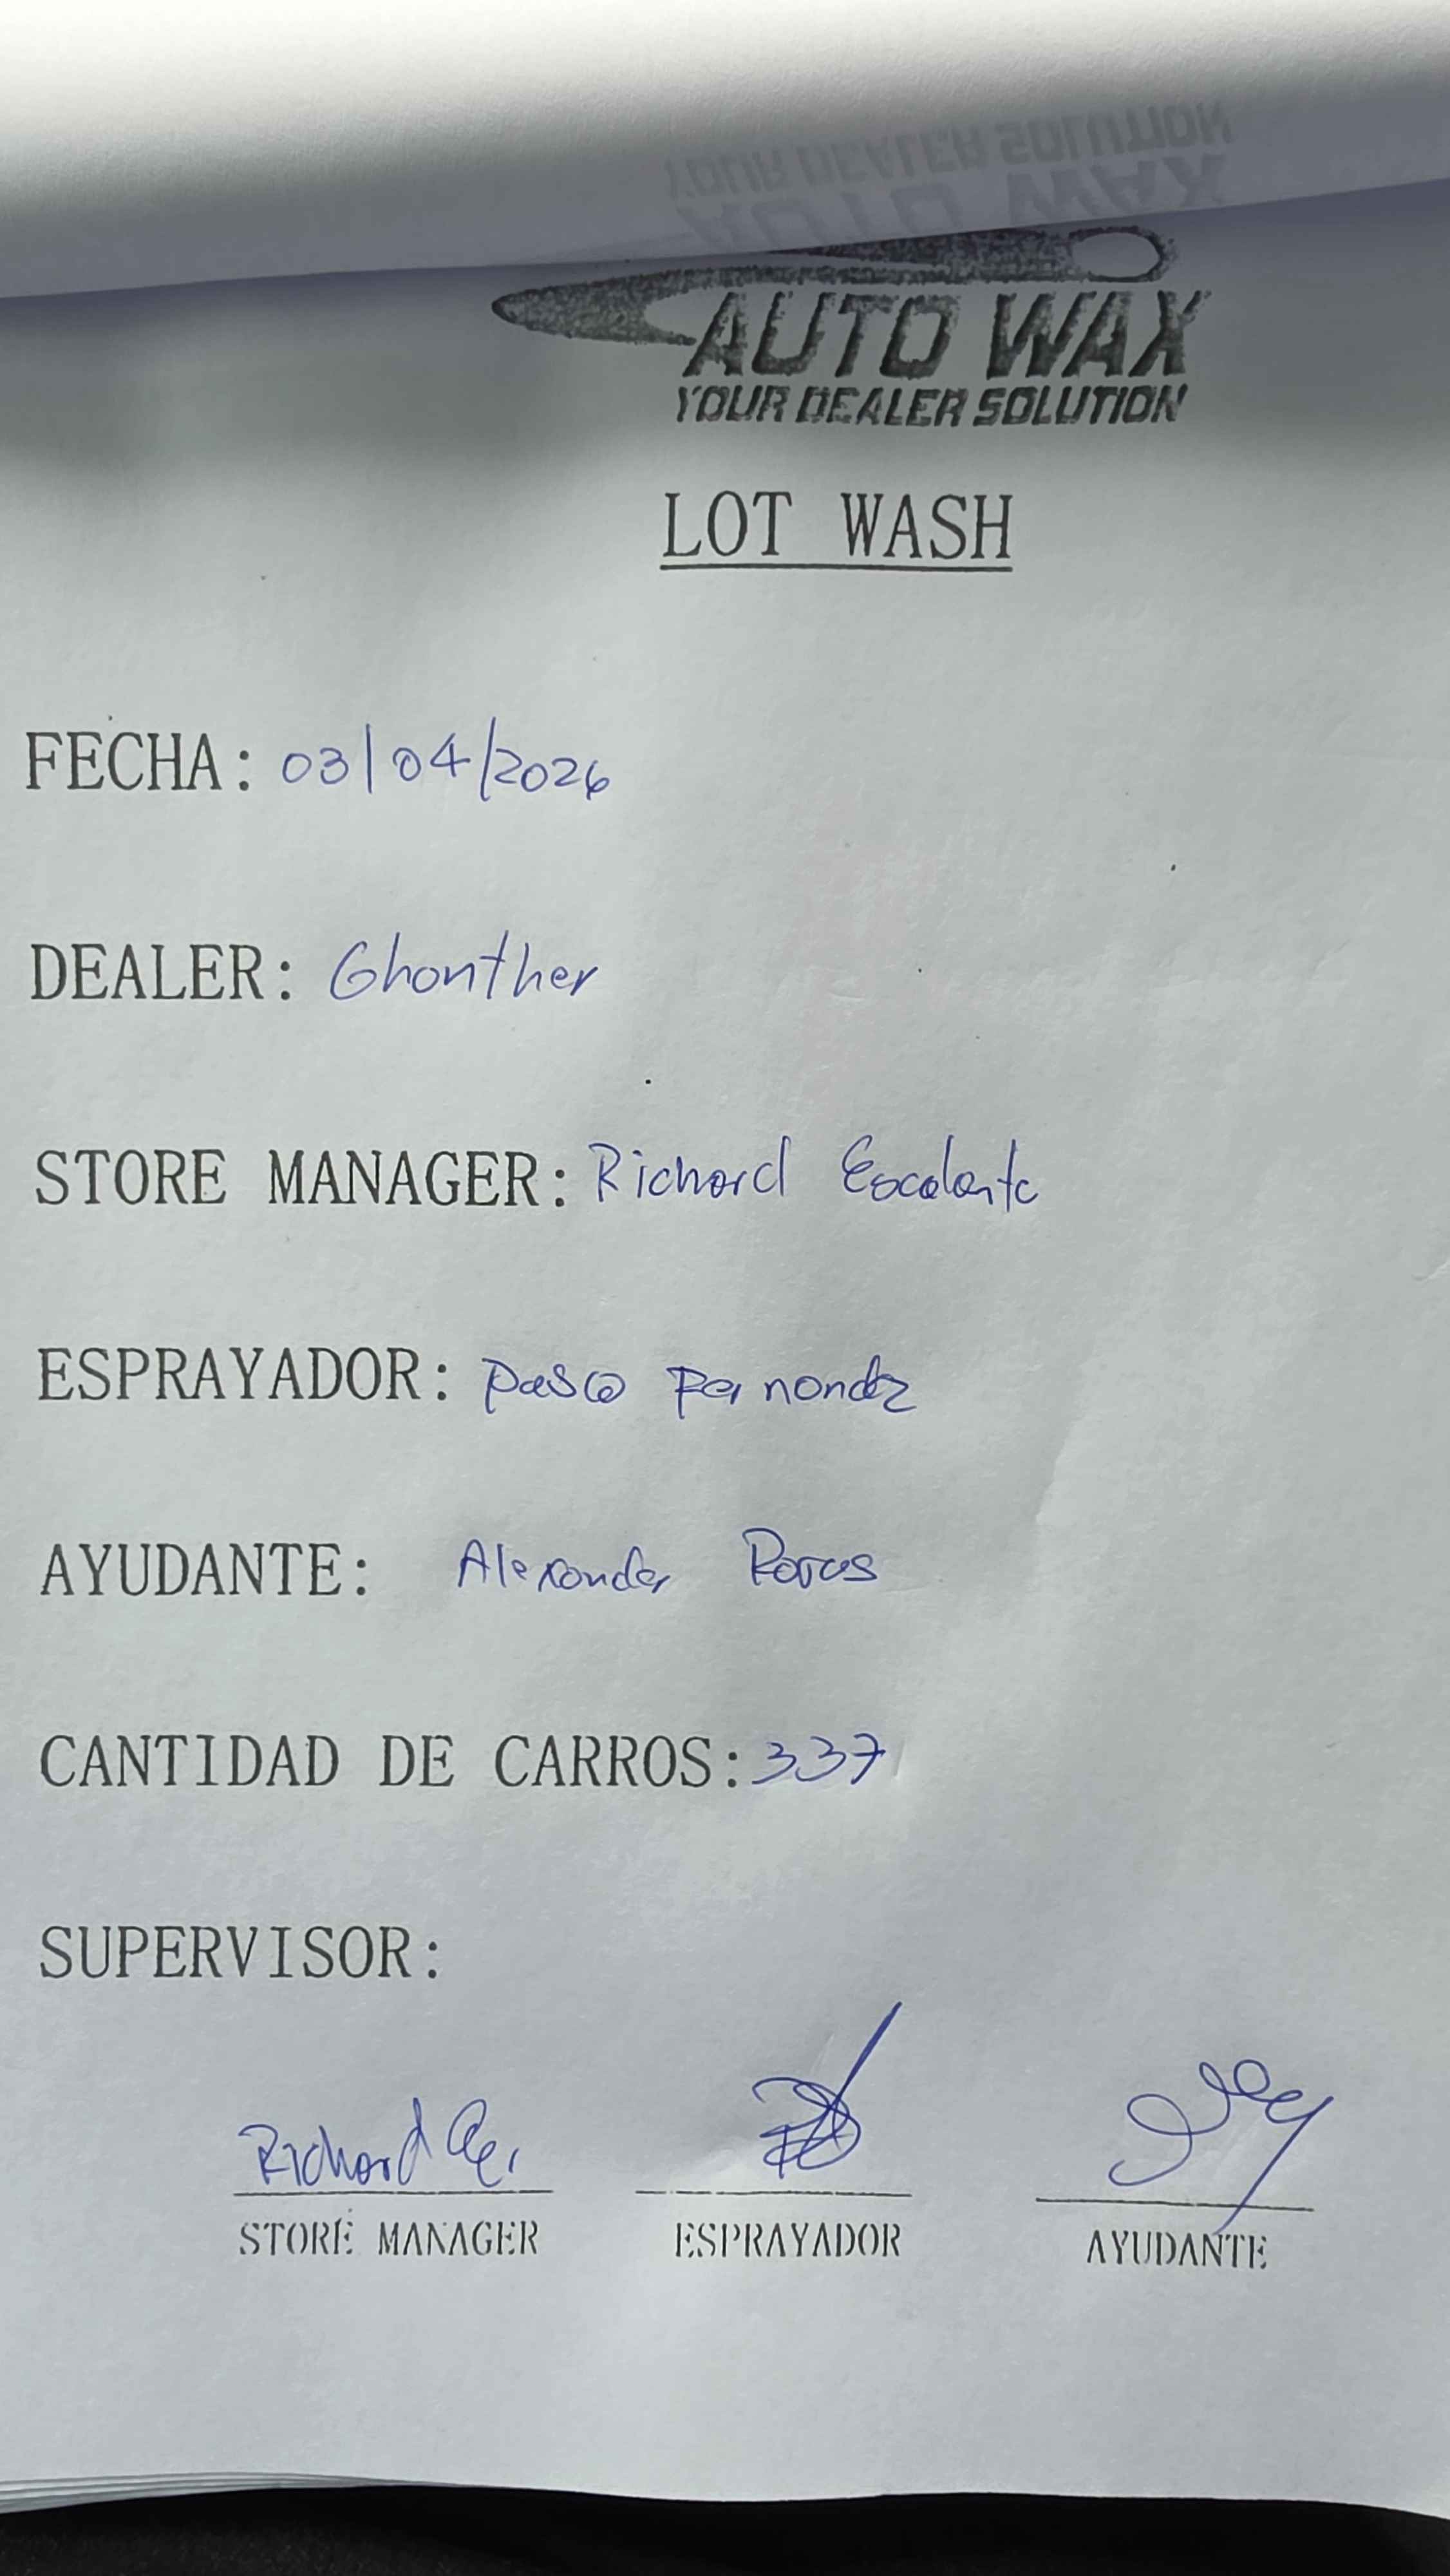 AUTO WAX
YOUR DEALER SOLUTION
LOT WASH
FECHA: 03/04/2026
DEALER: Ghonther
STORE MANAGER: Richard Escalante
ESPRAYADOR: Fernondz
AYUDANTE: Alexander
CANTIDAD DE CARROS: 337
SUPERVISOR:
Richard
STORE MANAGER ESPRAYADOR AYUDANTE